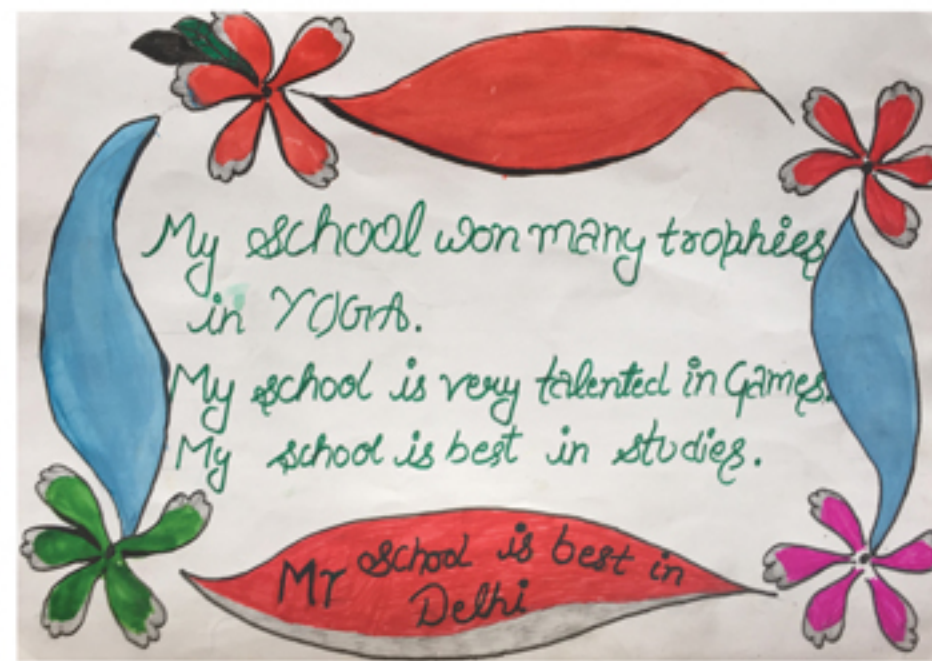 My school won many trophies
in YOGA.
My school is very talented in Games.
My school is best in studies.
My school is best in
Delhi